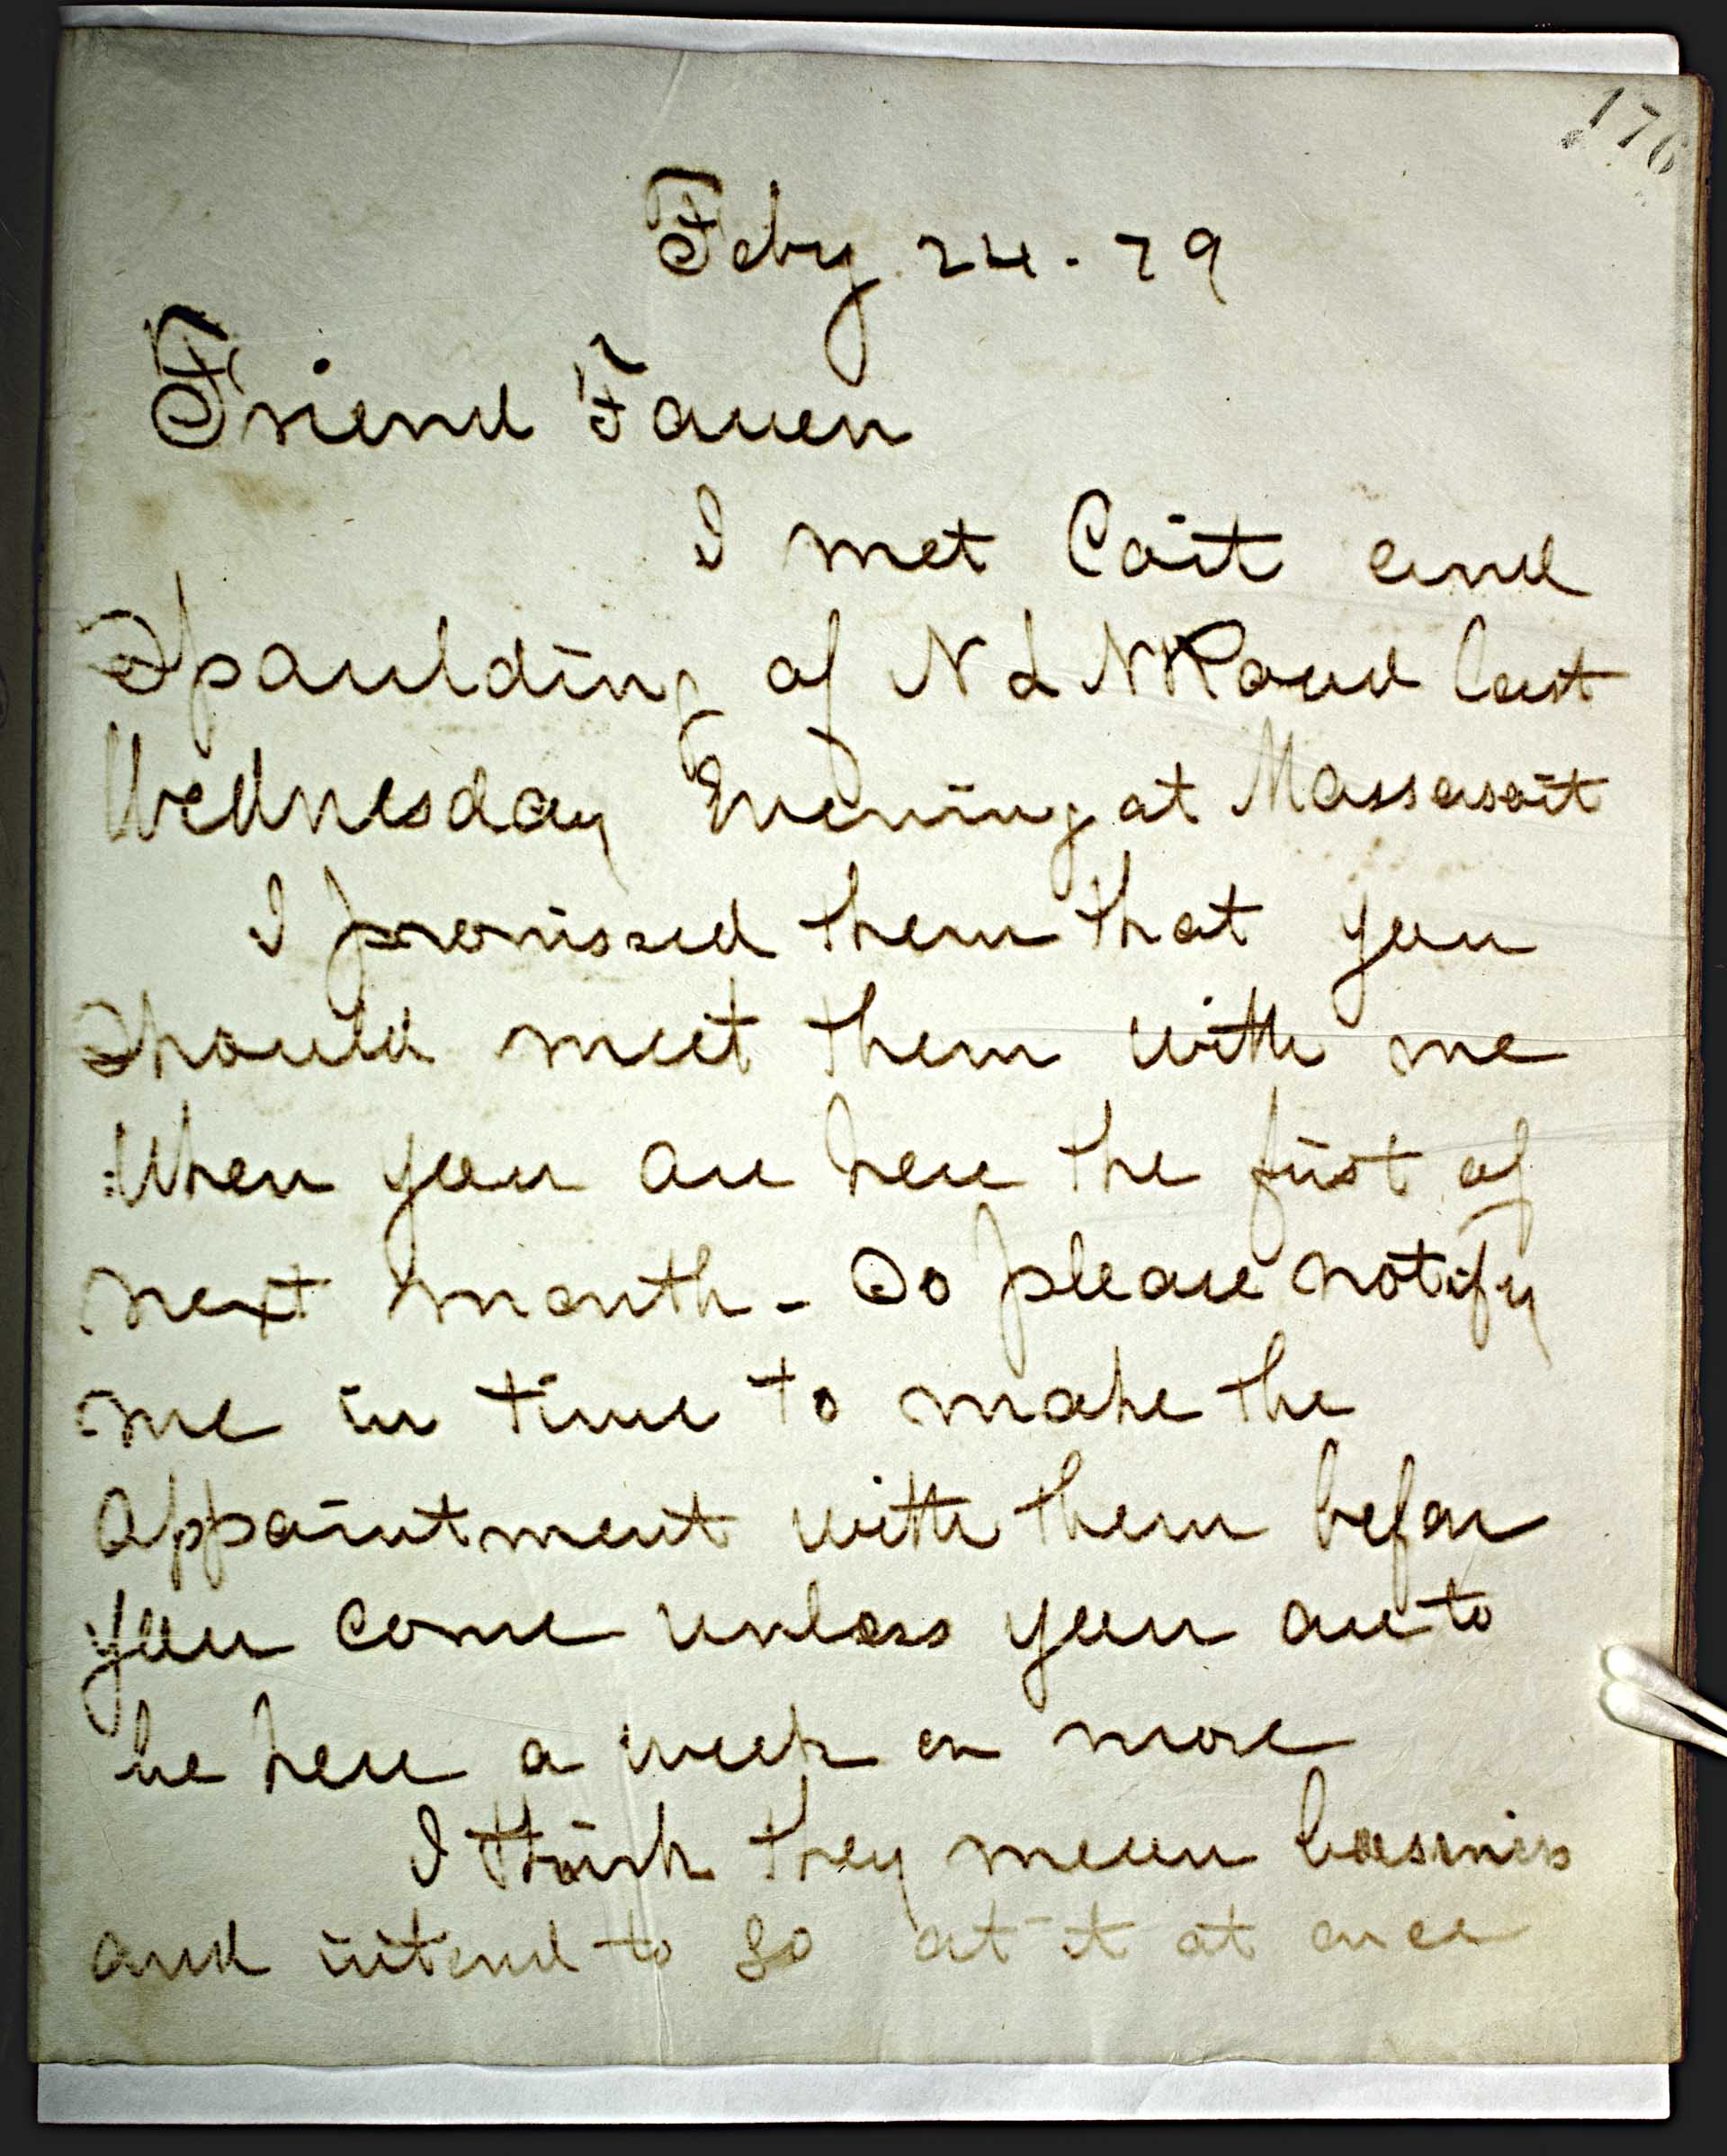 176
Feby 24 - 79
Friend Faven
I met Coit and
Spaulding of N L N Road last
Wednesday Evening at Massasoit
I promised them that you
Should meet them with me
When you are here the first of
next month - Do please notify
me in time to make the
Appointment with them before
you come unless you are to
be here a week or more
I think they mean business
and intend to go at it at once